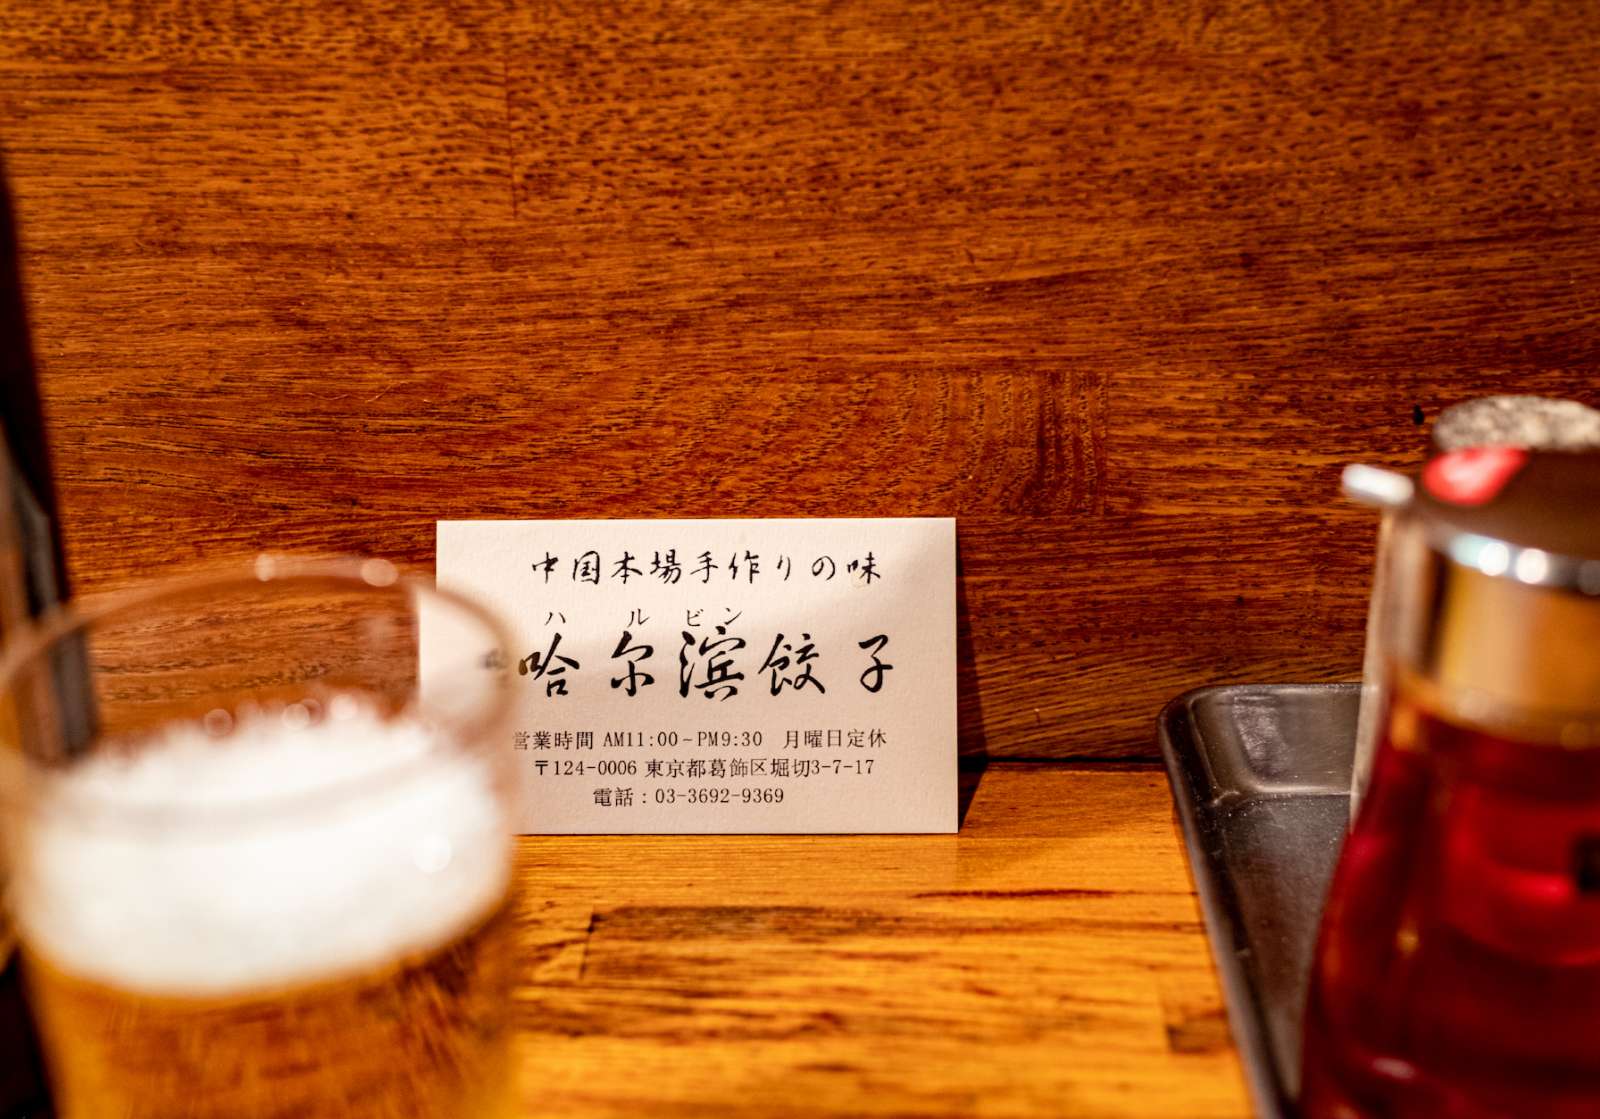 中国本場手作りの味
ハルビン
哈尔滨餃子
営業時間 AM11:00~PM9:30 月曜日定休
〒124-0006 東京都葛飾区堀切3-7-17
電話:03-3692-9369